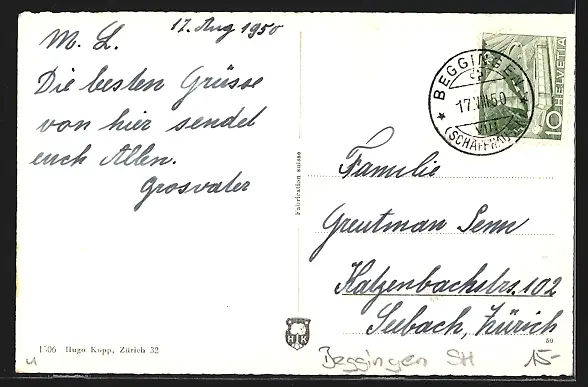 17. Aug 1950
M. L.
Die besten Grüsse
von hier sendet
euch Allen.
Grosvater
BEGGINGEN
17.VIII.50
(SCHAFFH
HELVETIA
10
Fabrication suisse
Familie
Greutman Senn
Katzenbachstrs. 102
Seebach, Zürich
HK
1506 Hugo Kopp, Zürich 32
50
Beggingen SH
15-